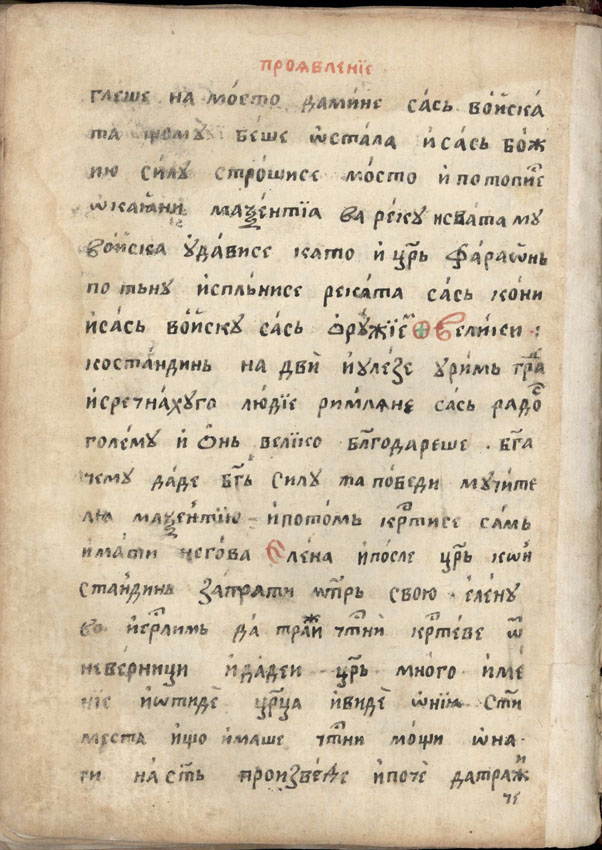 проявленїе
глеше на мо́сто дами́не са́сь во́йска́
та тому̀ бе́ше ѡста́ла и҆ са́сь бо́ж
їю си́лу стро́шисе мо́сто и҆ потопи́се
ѡкаѧ́ни маѯентїа ва реку исвата му
во́йска у҆да́висе като и҆ цр҃ь фараѡнь
потьну и҆спль́нисе река́та са́сь ко́ни
и҆са́сь во́йску са́сь ѻру́жїе Вели́ки :
коста́ндинь на двѝ и҆уле́зе уримь гра
и҆сретна́хуго лю́дїе ри́млѧне са́сь радо
голе́му и҆ ѻ́нь вели́ко бл҃года́реше . бг҃а
чему да́де бг҃ь силу та по́беди мучи́те
лю маѯе́нтїю и҆пото́мь кр҃тисе са́мь
и҆ма́ти негова Еле́на и҆по́сле цр҃ь кѡн
ста́ндинь запра́ти мт҃рь свою . еле́ну
во і҆ер҃лимь да тражи чт҃нй кр҃теве ѿ
неве́рници и҆да́деи цр҃ь мно́го и҆ме́
нїе и҆ѿтиде цр҃ца и҆виде ѡнїѧ ст҃и
места и҆що и҆маше чт҃ни мо́щи ѡна
ги на ст҃ь произве́де и҆поче датражи